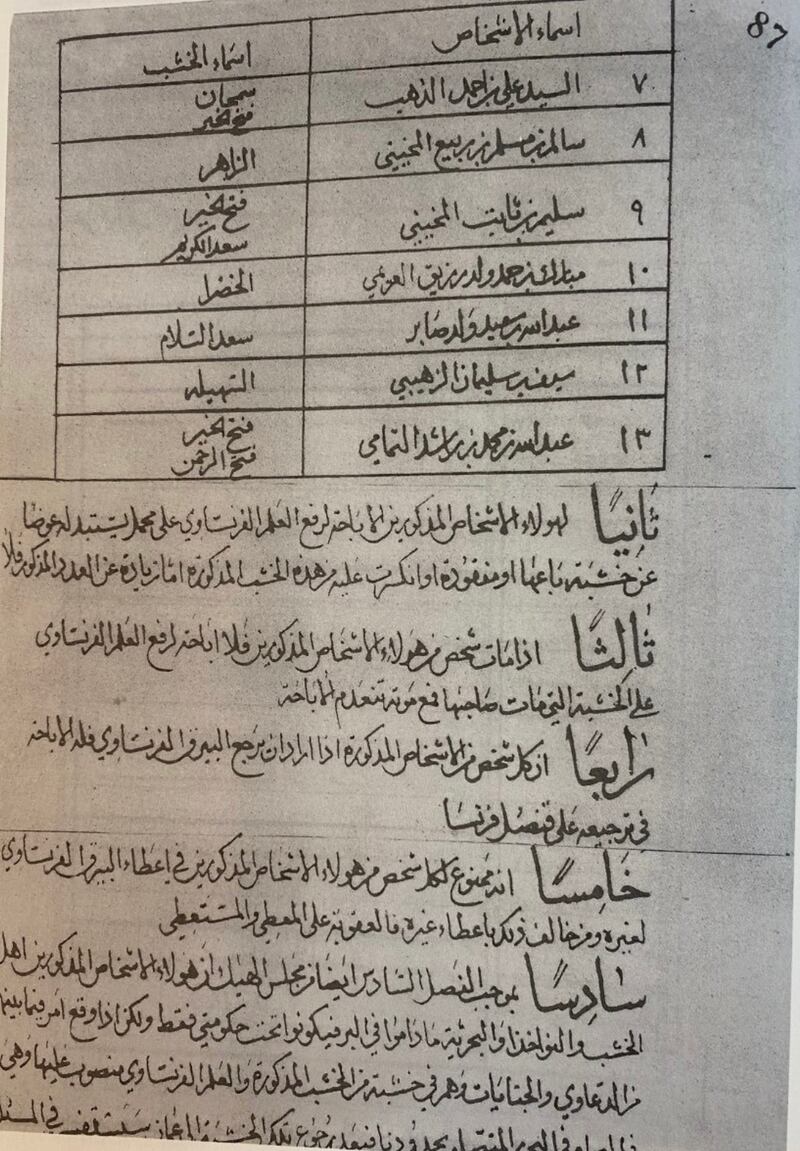 ٨٦
اسماء الاشخاص اسماء الخشب
٧ السيد علي بن احمد الذهيب سمحان فتح الخير
٨ سالم بن مسلم بن ربيع المخيني الزاهر
٩ سليم بن ثابت المخيني فتح الخير سعد الكريم
١٠ مبارك بن حمد ولد رزيق العويمي الخضرا
١١ عبدالله بن سعيد ولد صابر سعد السلام
١٢ سيف بن سليمان الزهيبي السهيله
١٣ عبدالله بن محمد بن راشد التمامي فتح الخير فتح الرحمن
ثانيًا لهولاء الاشخاص المذكورين الاباحة لرفع العلم الفرنساوي على محمل يستبدله عوضا
عن خشبة باعها او مفقودة او انكسرت عليه من هذه الخشب المذكورة امّا زيادة عن العدد المذكور فلا
ثالثًا اذا مات شخص من هولاء الاشخاص المذكورين فلا اباحة لرفع العلم الفرنساوي
على الخشبة التي مات صاحبها فمع موته تنعدم الاباحة
رابعًا ان كل شخص من الاشخاص المذكورة اذا اراد ان يرجع البيرق الفرنساوي فله الاباحة
في ترجيعه على قنصل فرنسا
خامسًا انه ممنوع لكل شخص من هولاء الاشخاص المذكورين في اعطاء البيرق الفرنساوي
لغيره ومن خالف ذلك باعطاء غيره فالعقوبة على المعطي والمستعطي
سادسًا بموجب الفصل السادس ايضا من مجلس الهيك ان هولاء الاشخاص المذكورين اهل
الخشب والنواخذا والبحرية ما داموا في البر فيكونوا تحت حكومتي فقط ولكن اذا وقع امر فيما بينهم
من الدعاوي والجنايات وهم في خشبة من الخشب المذكورة والعلم الفرنساوي منصوب عليها وهي
في البحر بحدودنا فبعد رجوع تلك الخشبة